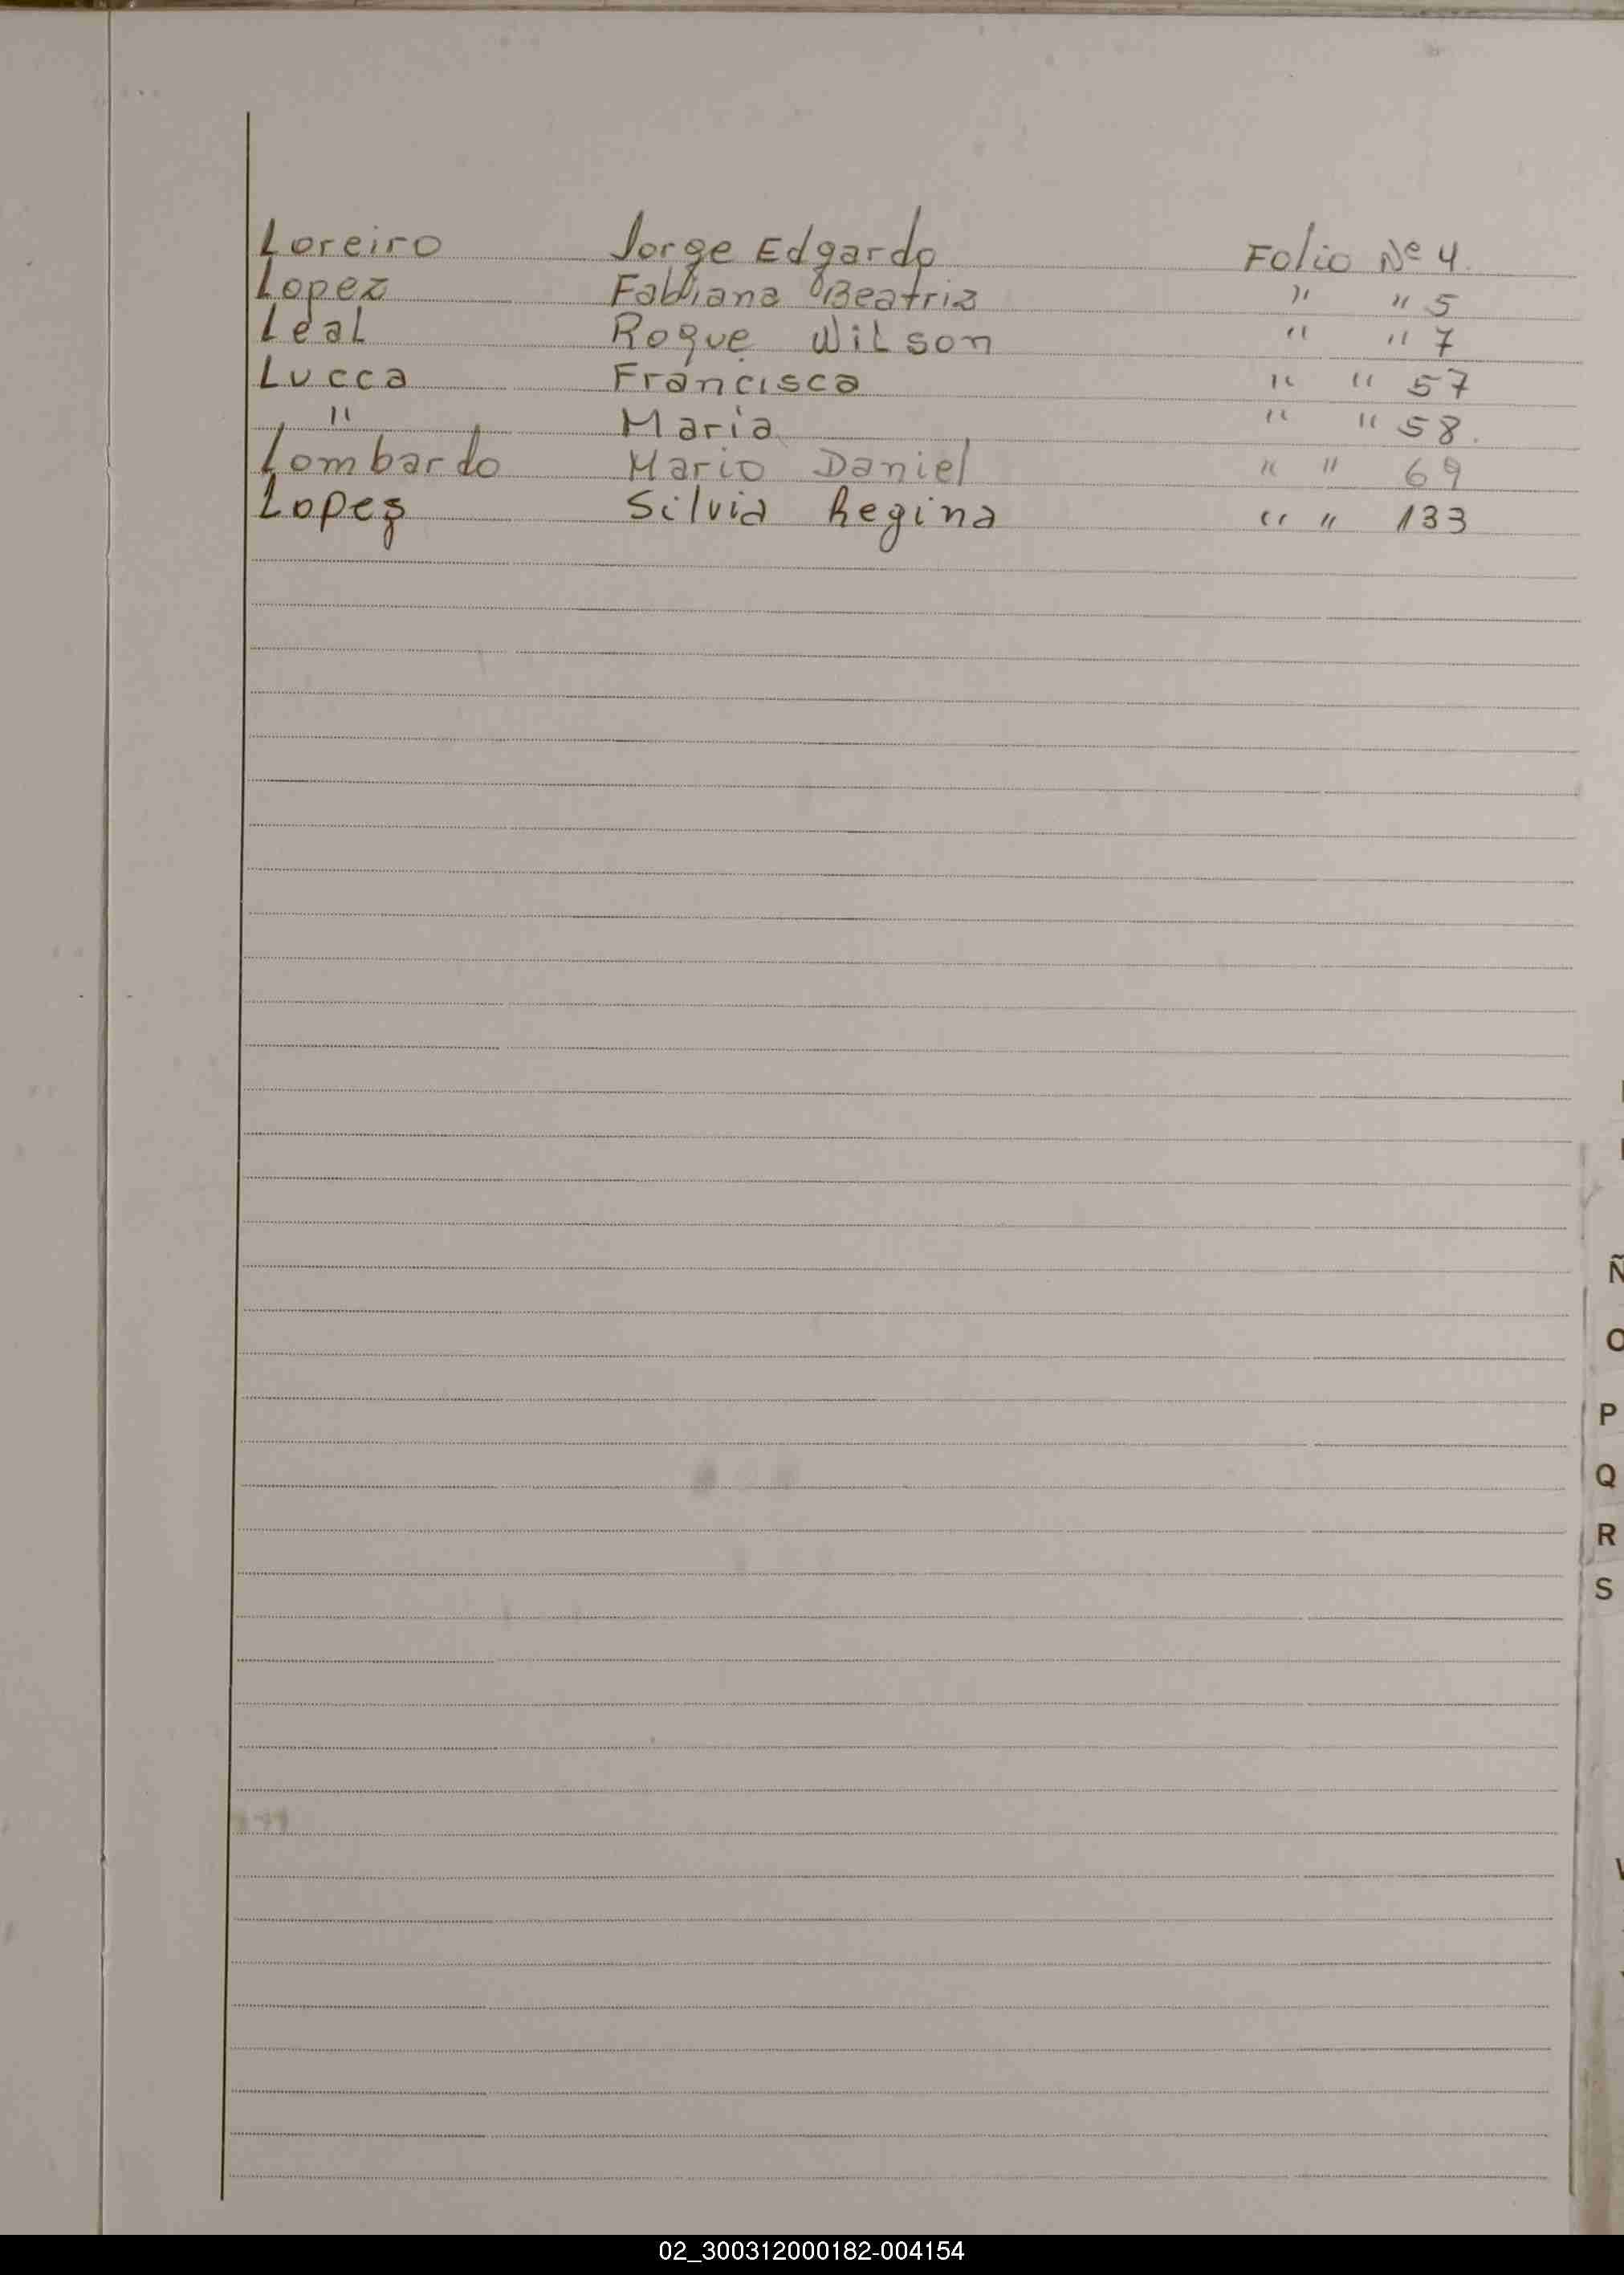 Loreiro Jorge Edgardo Folio Nº 4.
Lopez Fabiana Beatriz " " 5
Leal Roque Wilson " " 7
Lucca Francisca " " 57
" Maria " " 58.
Lombardo Mario Daniel " " 69
Lopez Silvia Regina " " 133
Ñ
O
P
Q
R
S
02_300312000182-004154